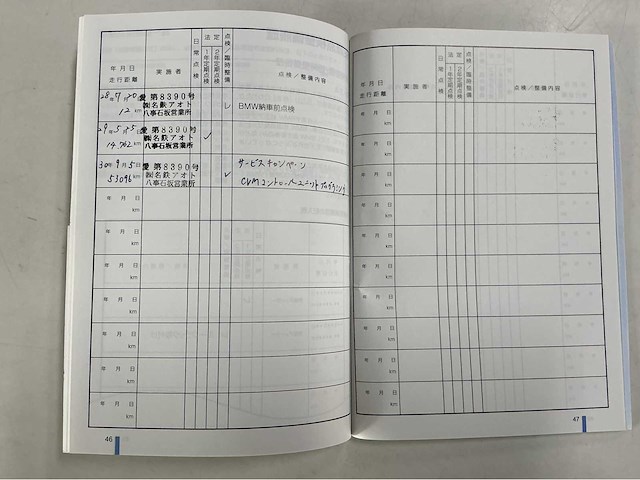 年月日
走行距離
実施者
日常点検
法定
1年定期点検
2年定期点検
点検/臨時整備
点検/整備内容
28年7月20日
12km
愛 第8390号
㈱名鉄アオト
八事石坂営業所
レ
BMW納車前点検
29年5月15日
14,762km
愛 第8390号
㈱名鉄アオト
八事石坂営業所
30年9月5日
53096km
愛 第8390号
㈱名鉄アオト
八事石坂営業所
サービスキャンペーン
年 月 日
km
年 月 日
km
年 月 日
km
年 月 日
km
年 月 日
km
年 月 日
km
年 月 日
km
46
年月日
走行距離
実施者
日常点検
法定
1年定期点検
2年定期点検
点検/臨時整備
点検/整備内容
年 月 日
km
年 月 日
km
年 月 日
km
年 月 日
km
年 月 日
km
年 月 日
km
年 月 日
km
年 月 日
km
年 月 日
km
年 月 日
km
47